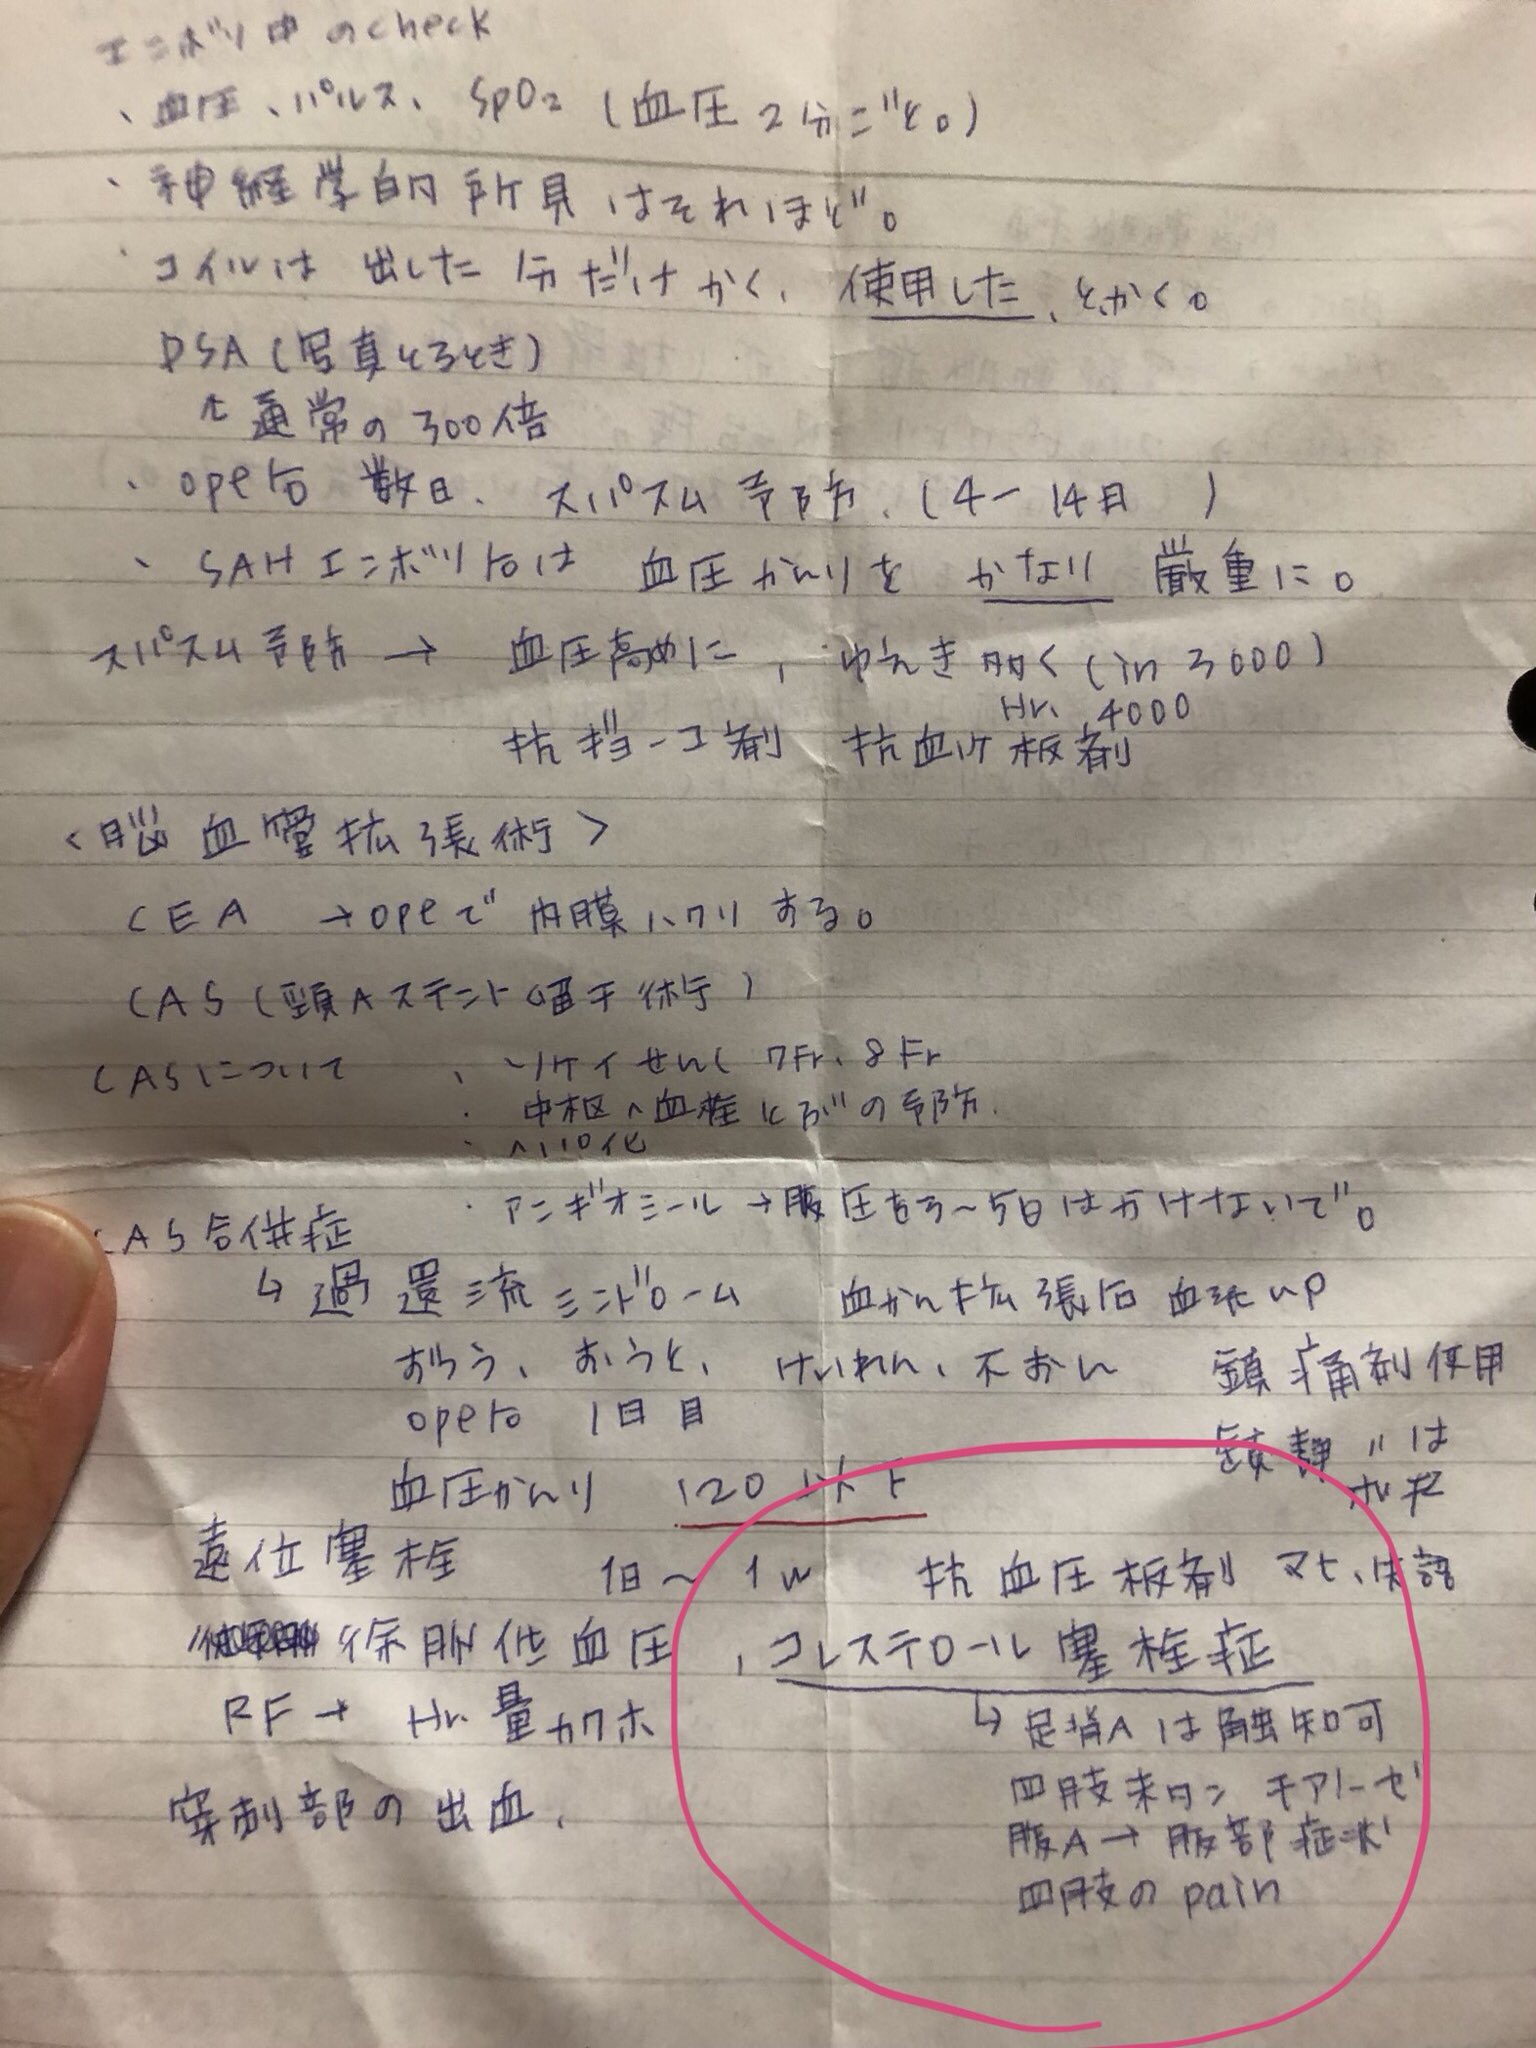 エンボリ中のcheck
、血圧、パルス、SpO2（血圧2分ごと。）
、神経学的所見はそれほど。
・コイルは出した分だけかく、使用した、とかく。
DSA（写真とるとき）
↑通常の300倍
、ope后 数日、スパズム予防、（4ー14日　）
、SAHエンボリ后は 血圧かんりを かなり 厳重に。
スパズム予防 → 血圧高めに、ゆえき多く（in 3000）
Hr. 4000
抗ギョーコ剤 抗血小板剤
<脳血管拡張術>
CEA →opeで 内膜ハクリする。
CAS（頸Aステント留干術）
CASについて 、ソケイせんし 7Fr、8Fr
・中枢へ血栓とぶの予防.
・ヘパ化
・アンギオミール→腹圧も3〜5日はかけないで。
CAS合併症
↳ 過還流シンドローム 血かん拡張后 血流up
おうと、けいれん、不おん 鎮痛剤使用
ope后 1日目
鎮静〃は
血圧かんり 120以下
遠位塞栓 1日〜1w 抗血圧板剤 マヒ、失語
徐脈低血圧 、コレステロール塞栓症
RF→ Hr.量カクホ ↳足背Aは触知可
四肢末タン チアノーゼ
穿刺部の出血、
腹A→腹部症状
四肢のpain